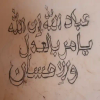 عباد الله إن الله
يامر بالعدل
والاحسان